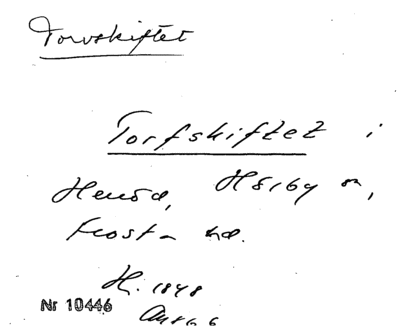 Torvskiftet
Torfskiftet i
Heurød, Hørby sn,
Frosta hd.
H. 1848
Nr 10446